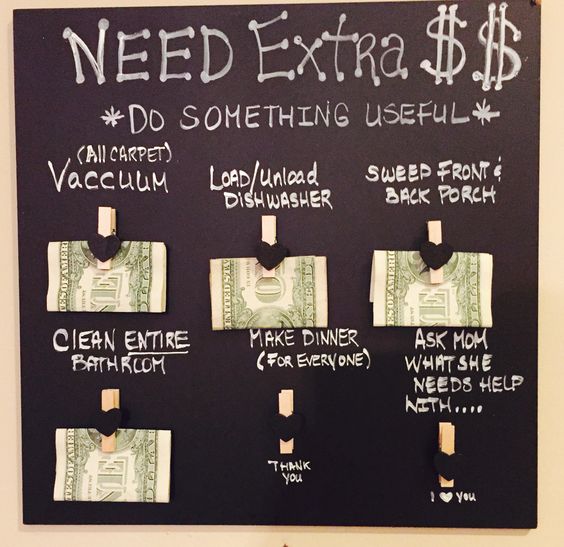 NEED Extra $$
*DO SOMETHING USEFUL*
(All CARPET)
VACCUUM
LOAD/UNLOAD
DISHWASHER
SWEEP FRONT &
BACK PORCH
CLEAN ENTIRE
BATHROOM
MAKE DINNER
(FOR EVERYONE)
ASK MOM
WHAT SHE
NEEDS HELP
WITH....
THANK
YOU
I ♥ YOU